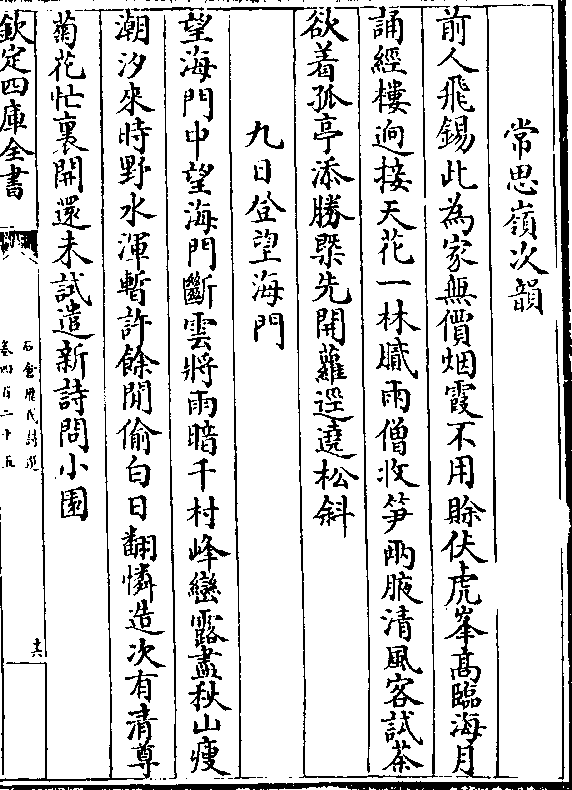 常思嶺次韻
前人飛錫此為家無價烟霞不用賖伏虎峯髙臨海月
誦經樓逈接天花一林膩雨僧收笋兩腋清風客試茶
欲着孤亭添勝槩先開蘿逕遶松斜
九日登望海門
望海門中望海門斷雲將雨暗千村峰巒露盡秋山瘦
潮汐來時野水渾暫許餘閒偷白日翻憐造次有清尊
菊花忙裏開還未試遣新詩問小園
欽定四庫全書
石倉歴代詩選
卷四百二十五
十六